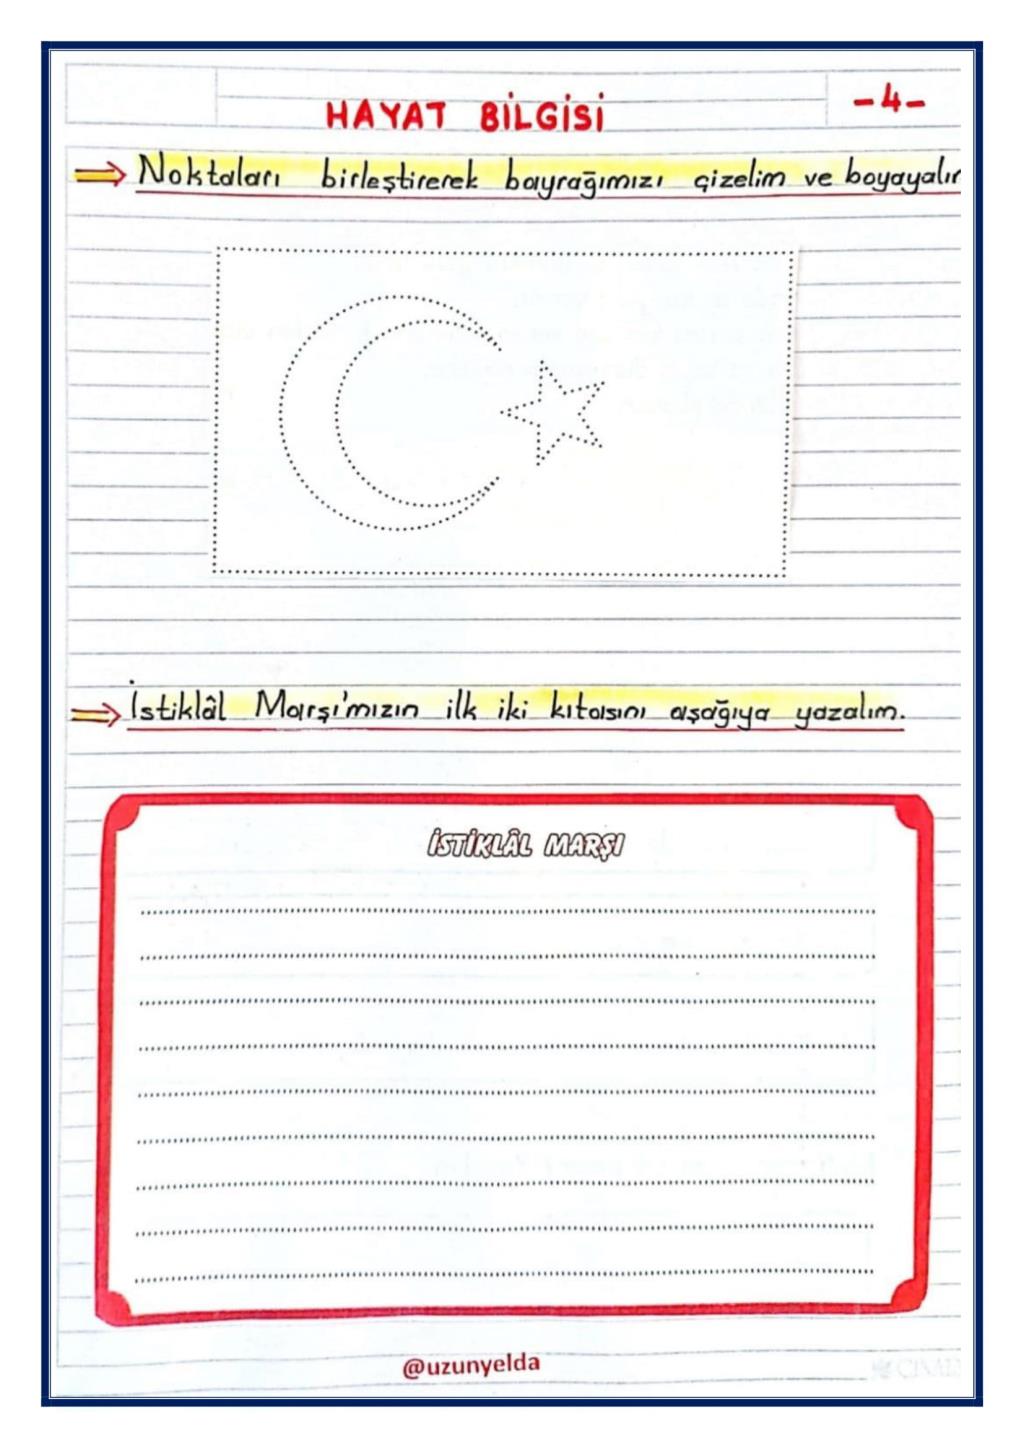 HAYAT BİLGİSİ
-4-
Noktaları birleştirerek bayrağımızı çizelim ve boyayalır
İstiklâl Marşı'mızın ilk iki kıtasını aşağıya yazalım.
İSTİKLÂL MARŞI
@uzunyelda